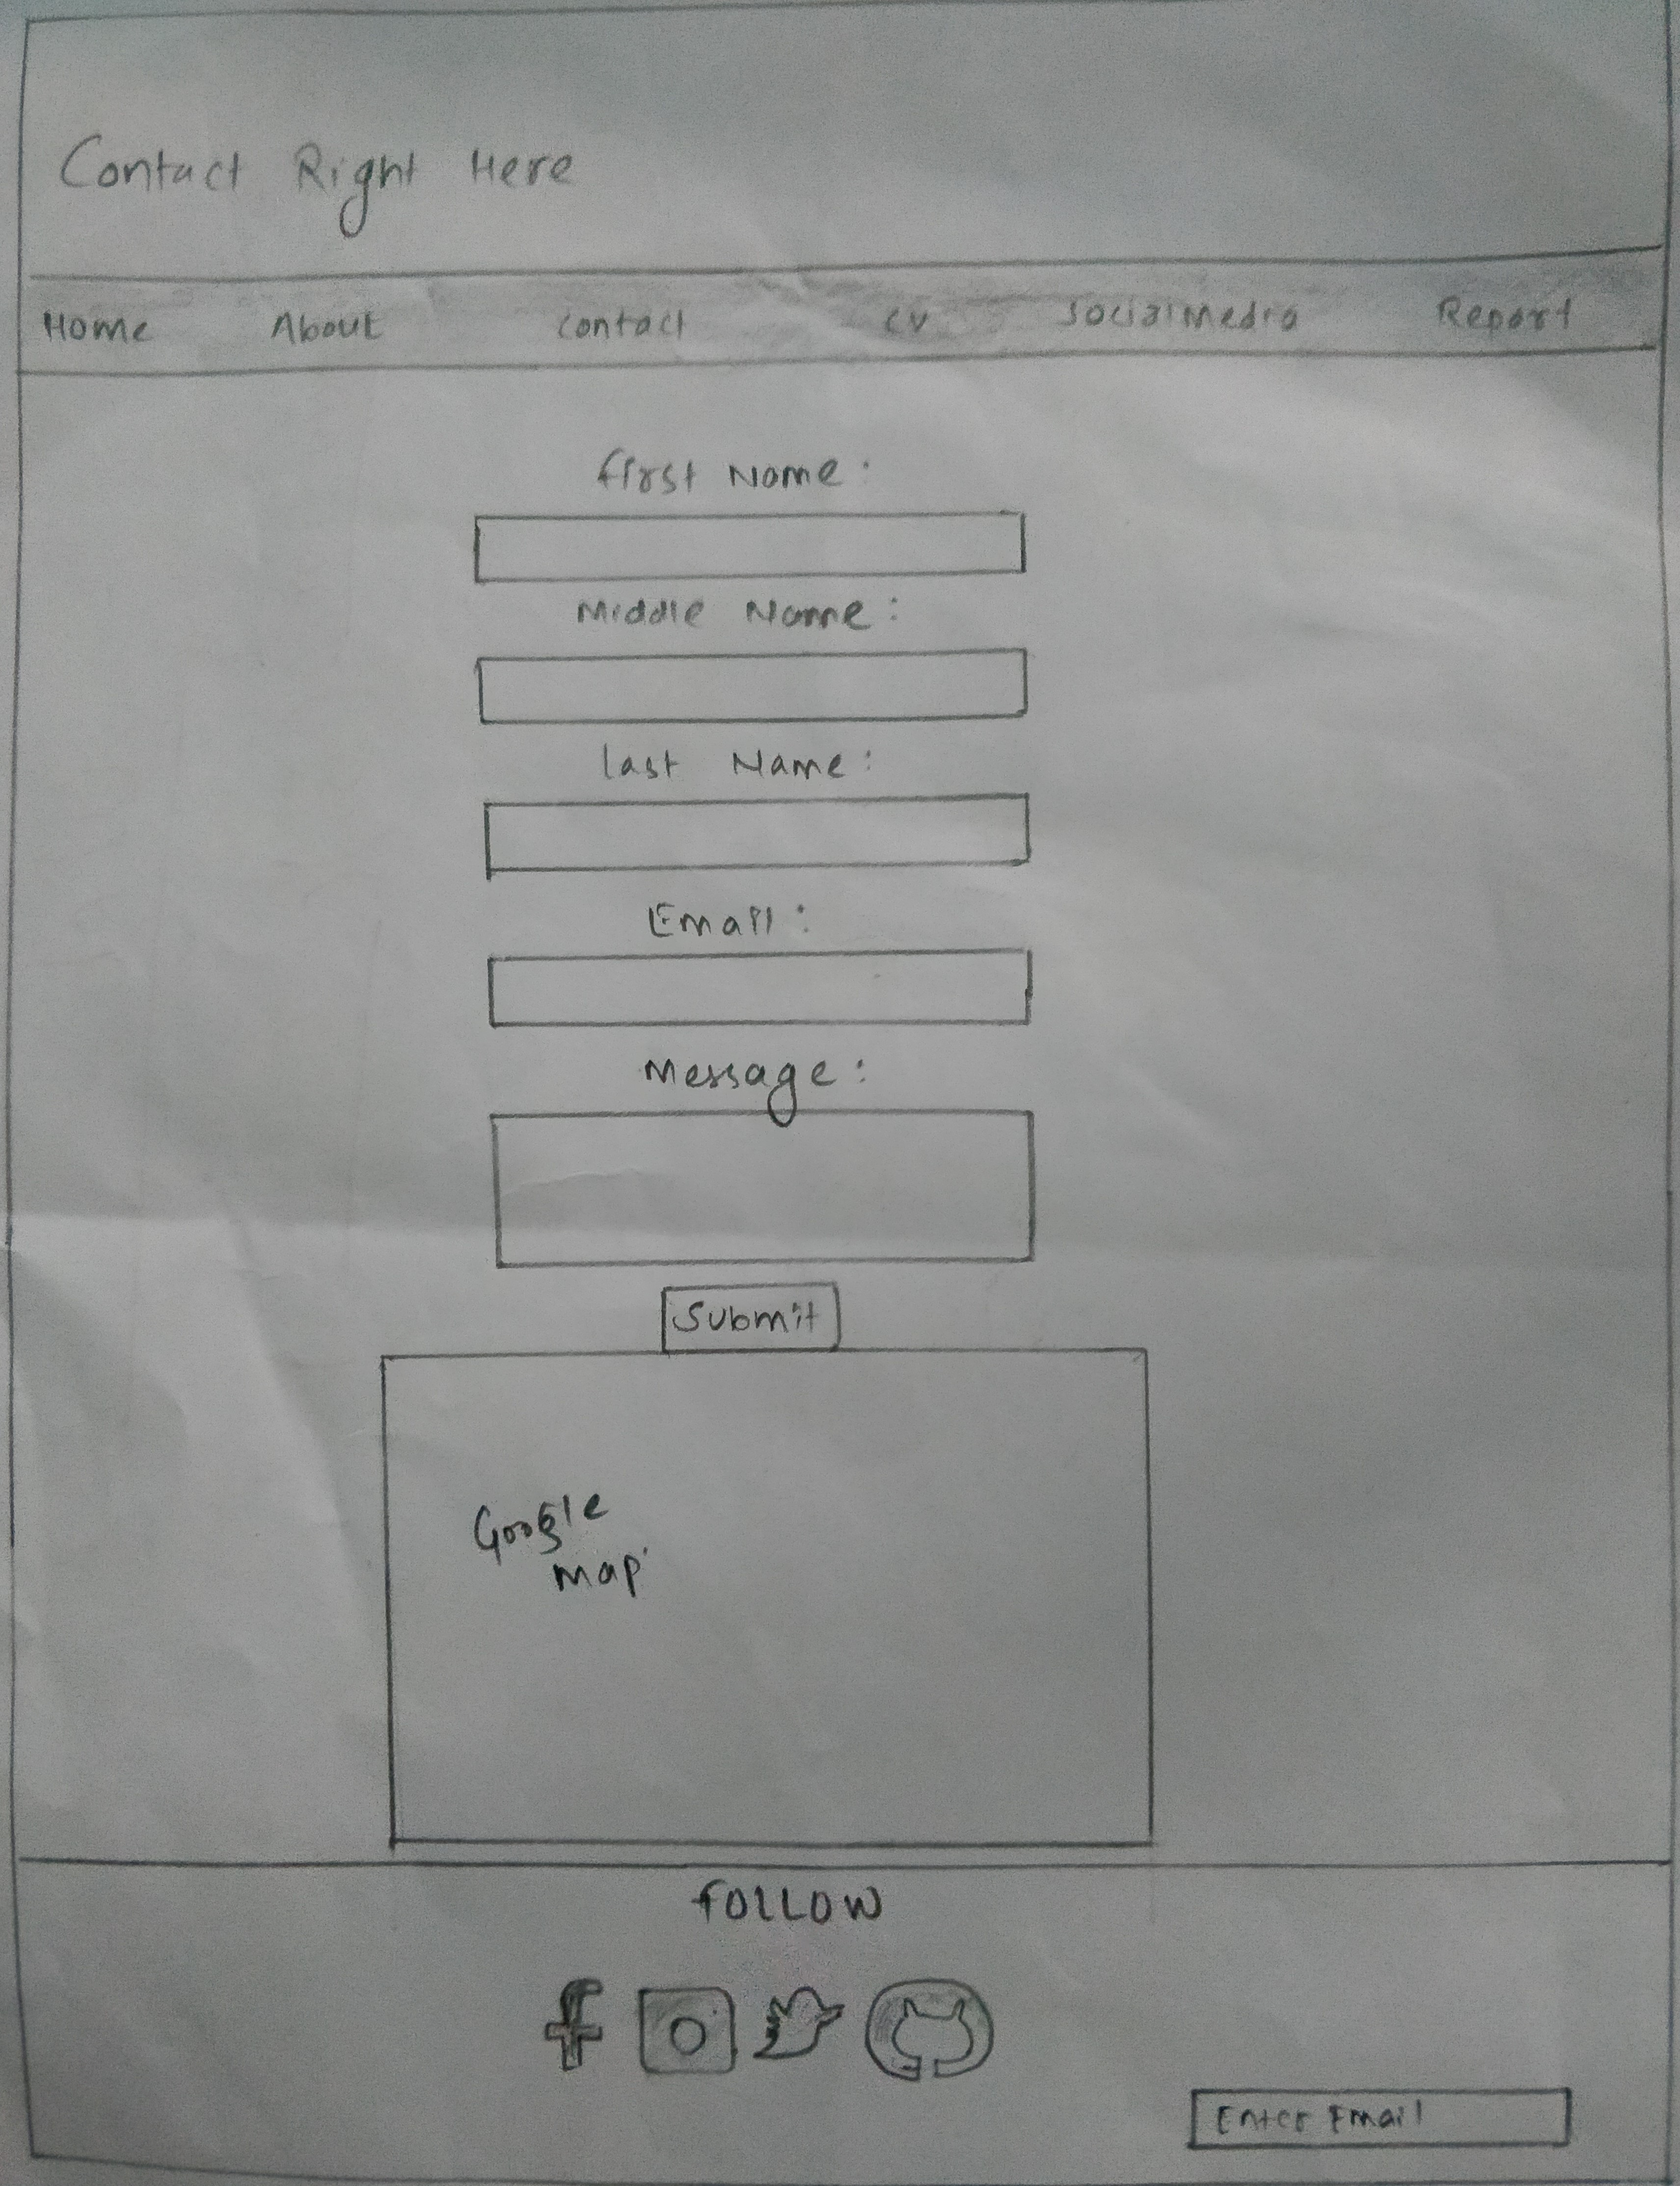 Contact Right Here
Home About Contact CV Socialmedia Report
First Name :
Middle Name :
Last Name :
Email :
Message :
Submit
Google
Map
FOLLOW
Enter Email